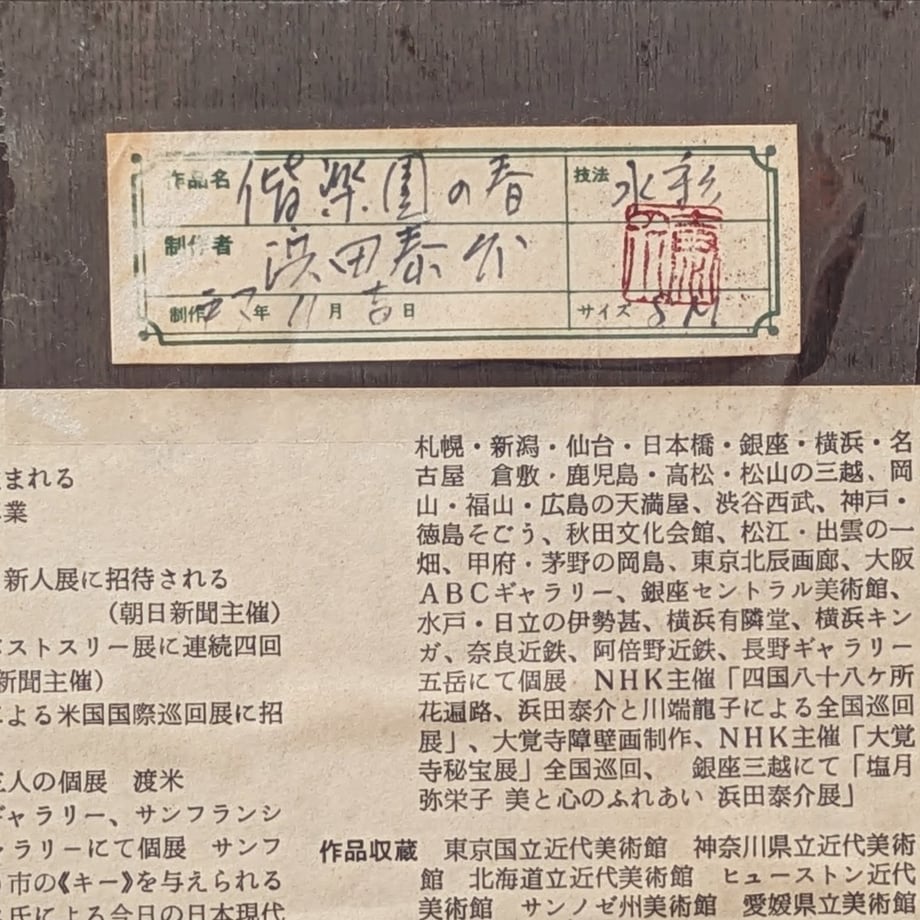 作品名 偕楽園の春
技法 水彩
制作者 浜田泰介
制作 年 11月吉日
サイズ SM
まれる
業
新人展に招待される
(朝日新聞主催)
ストスリー展に連続四回
新聞主催)
よる米国国際巡回展に招
人の個展 渡米
ギャラリー、サンフランシ
ラリーにて個展 サンフ
市の《キー》を与えられる
氏による今日の日本現代
札幌・新潟・仙台・日本橋・銀座・横浜・名
古屋 倉敷・鹿児島・高松・松山の三越、岡
山・福山・広島の天満屋、渋谷西武、神戸・
徳島そごう、秋田文化会館、松江・出雲の一
畑、甲府・茅野の岡島、東京北辰画廊、大阪
ABCギャラリー、銀座セントラル美術館、
水戸・日立の伊勢甚、横浜有隣堂、横浜キン
ガ、奈良近鉄、阿倍野近鉄、長野ギャラリー
五岳にて個展 NHK主催「四国八十八ケ所
花遍路、浜田泰介と川端龍子による全国巡回
展」、大覚寺障壁画制作、NHK主催「大覚
寺秘宝展」全国巡回、 銀座三越にて「塩月
弥栄子 美と心のふれあい 浜田泰介展」
作品収蔵 東京国立近代美術館 神奈川県立近代美術
館 北海道立近代美術館 ヒューストン近代
美術館 サンノゼ州美術館 愛媛県立美術館